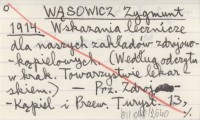 WĄSOWICZ Zygmunt
1914. Wskazania lecznicze
dla naszych zakładów zdrojowo-
-kąpielowych. (Według odczytu
w krak. Towarzystwie lekar
skiem.) — Prz. Zdroj.
-Kąpiel i Przew. Turyst. 13,